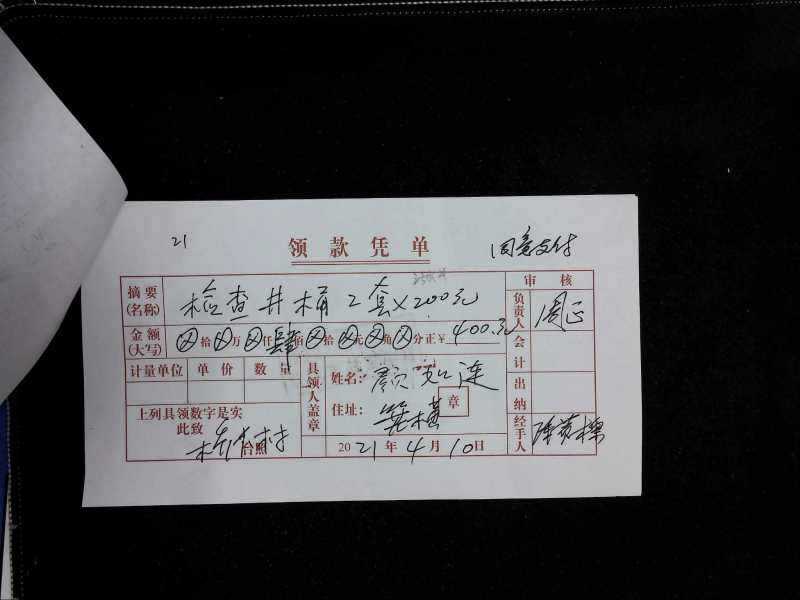 21
领款凭单
同意支付
摘要
(名称)
检查井桶2套×200元
审核
负责人
周正
金额
(大写)
⊗拾⊗万⊗仟肆佰⊗拾⊗元⊗角⊗分正¥400.元
会计
计量单位 单价 数量
具领人盖章
姓名:颜如连
住址:
章
出纳
上列具领数字是实
此致
台照
2021年4月10日
经手人